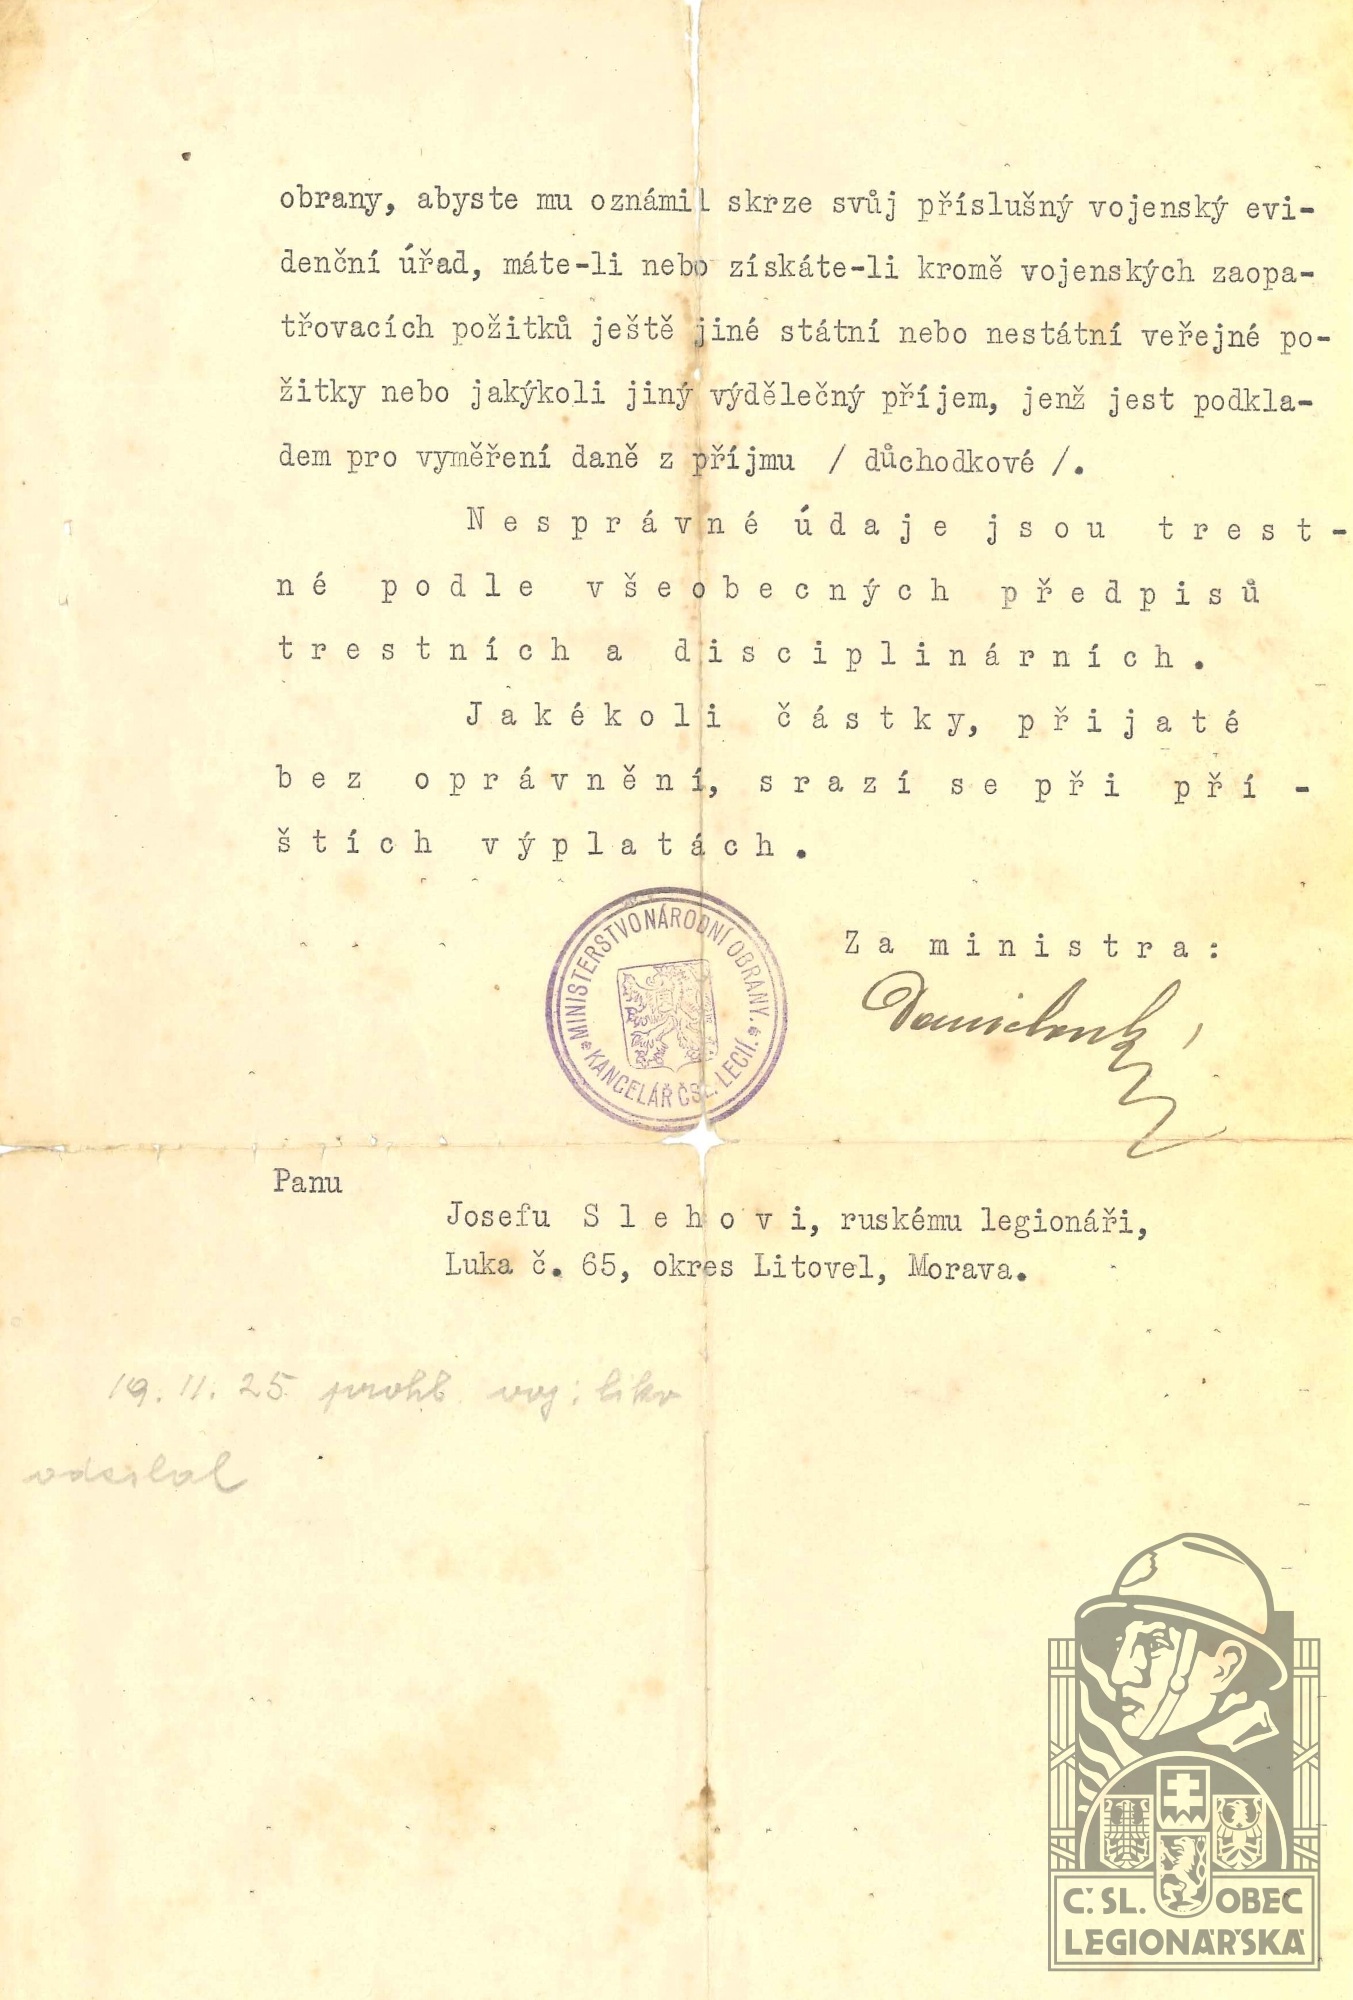 obrany, abyste mu oznámil skrze svůj příslušný vojenský evi-
denční úřad, máte-li nebo získáte-li kromě vojenských zaopa-
třovacích požitků ještě jiné státní nebo nestátní veřejné po-
žitky nebo jakýkoli jiný výdělečný příjem, jenž jest podkla-
dem pro vyměření daně z příjmu / důchodkové /.
N e s p r á v n é ú d a j e j s o u t r e s t -
n é p o d l e v š e o b e c n ý c h p ř e d p i s ů
t r e s t n í c h a d i s c i p l i n á r n í c h .
J a k é k o l i č á s t k y, p ř i j a t é
b e z o p r á v n ě n í, s r a z í s e p ř i p ř í -
š t í c h v ý p l a t á c h .
MINISTERSTVO NÁRODNÍ OBRANY.
KANCELÁŘ ČSL. LEGIÍ.
Z a m i n i s t r a :
Panu
Josefu S l e h o v i, ruskému legionáři,
Luka č. 65, okres Litovel, Morava.
19. 11. 25 prohl. voj. likv
odeslal
Č.SL. OBEC
LEGIONÁŘSKÁ